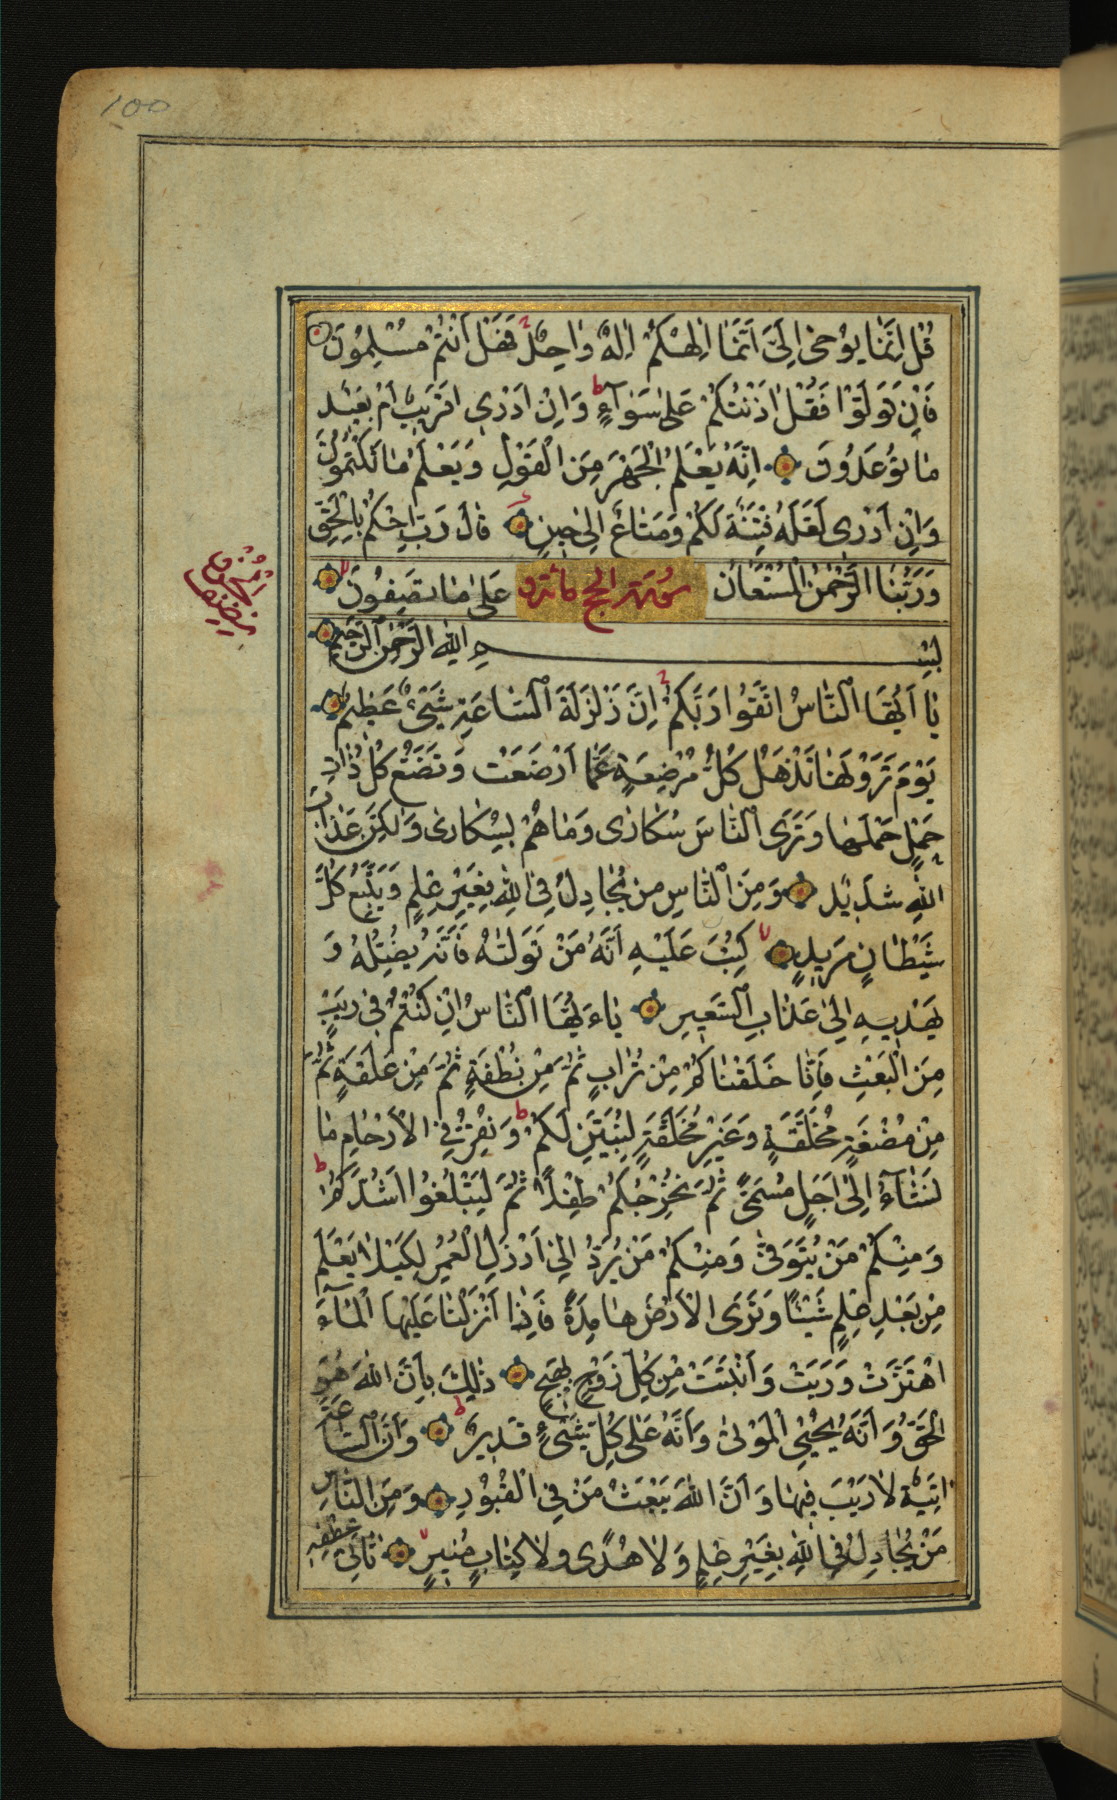 100
قُلْ اِنَّمٰا يُوحٰى اِلَىَّ اَنَّمٰا اِلٰهُكُمْ اِلٰهٌ وٰاحِدٌ فَهَلْ اَنْتُمْ مُسْلِمُونَ
فَاِنْ تَوَلَّوْا فَقُلْ اٰذَنْتُكُمْ عَلىٰ سَوٰآءٍ وَاِنْ اَدْرٖى اَقَرٖيبٌ اَمْ بَعٖيدٌ
مٰا تُوعَدُونَ اِنَّهُ يَعْلَمُ الْجَهْرَ مِنَ الْقَوْلِ وَيَعْلَمُ مٰا تَكْتُمُونَ
وَاِنْ اَدْرٖى لَعَلَّهُ فِتْنَةٌ لَكُمْ وَمَتٰاعٌ اِلىٰ حٖينٍ قٰالَ رَبِّ احْكُمْ بِالْحَقِّ
وَرَبُّنَا الرَّحْمٰنُ الْمُسْتَعٰانُ
سورة الحج
عَلىٰ مٰا تَصِفُونَ
بِسْمِ اللّٰهِ الرَّحْمٰنِ الرَّحٖيمِ
يٰا اَيُّهَا النّٰاسُ اتَّقُوا رَبَّكُمْ اِنَّ زَلْزَلَةَ السّٰاعَةِ شَىْءٌ عَظٖيمٌ
يَوْمَ تَرَوْنَهٰا تَذْهَلُ كُلُّ مُرْضِعَةٍ عَمّٰا اَرْضَعَتْ وَتَضَعُ كُلُّ ذٰاتِ
حَمْلٍ حَمْلَهٰا وَتَرَى النّٰاسَ سُكٰارٰى وَمٰا هُمْ بِسُكٰارىٰ وَلٰكِنَّ عَذٰابَ
اللّٰهِ شَدٖيدٌ وَمِنَ النّٰاسِ مَنْ يُجٰادِلُ فِى اللّٰهِ بِغَيْرِ عِلْمٍ وَيَتَّبِعُ كُلَّ
شَيْطٰانٍ مَرٖيدٍ كُتِبَ عَلَيْهِ اَنَّهُ مَنْ تَوَلّٰهُ فَاَنَّهُ يُضِلُّهُ وَ
يَهْدٖيهِ اِلىٰ عَذٰابِ السَّعٖيرِ يٰاءَيُّهَا النّٰاسُ اِنْ كُنْتُمْ فٖى رَيْبٍ
مِنَ الْبَعْثِ فَاِنّٰا خَلَقْنٰاكُمْ مِنْ تُرٰابٍ ثُمَّ مِنْ نُطْفَةٍ ثُمَّ مِنْ عَلَقَةٍ ثُمَّ
مِنْ مُضْغَةٍ مُخَلَّقَةٍ وَغَيْرِ مُخَلَّقَةٍ لِنُبَيِّنَ لَكُمْ وَنُقِرُّ فِى الْاَرْحٰامِ مٰا
نَشٰآءُ اِلىٰ اَجَلٍ مُسَمًّى ثُمَّ نُخْرِجُكُمْ طِفْلًا ثُمَّ لِتَبْلُغُوا اَشُدَّكُمْ
وَمِنْكُمْ مَنْ يُتَوَفّٰى وَمِنْكُمْ مَنْ يُرَدُّ اِلىٰ اَرْذَلِ الْعُمُرِ لِكَيْلٰا يَعْلَمَ
مِنْ بَعْدِ عِلْمٍ شَيْئًا وَتَرَى الْاَرْضَ هٰامِدَةً فَاِذٰا اَنْزَلْنٰا عَلَيْهَا الْمٰآءَ
اهْتَزَّتْ وَرَبَتْ وَاَنْبَتَتْ مِنْ كُلِّ زَوْجٍ بَهٖيجٍ ذٰلِكَ بِاَنَّ اللّٰهَ هُوَ
الْحَقُّ وَاَنَّهُ يُحْيِى الْمَوْتىٰ وَاَنَّهُ عَلىٰ كُلِّ شَىْءٍ قَدٖيرٌ وَاَنَّ السّٰاعَةَ
اٰتِيَةٌ لٰا رَيْبَ فٖيهٰا وَاَنَّ اللّٰهَ يَبْعَثُ مَنْ فِى الْقُبُورِ وَمِنَ النّٰاسِ
مَنْ يُجٰادِلُ فِى اللّٰهِ بِغَيْرِ عِلْمٍ وَلٰا هُدًى وَلٰا كِتٰابٍ مُنٖيرٍ ثٰانِىَ عِطْفِهٖ